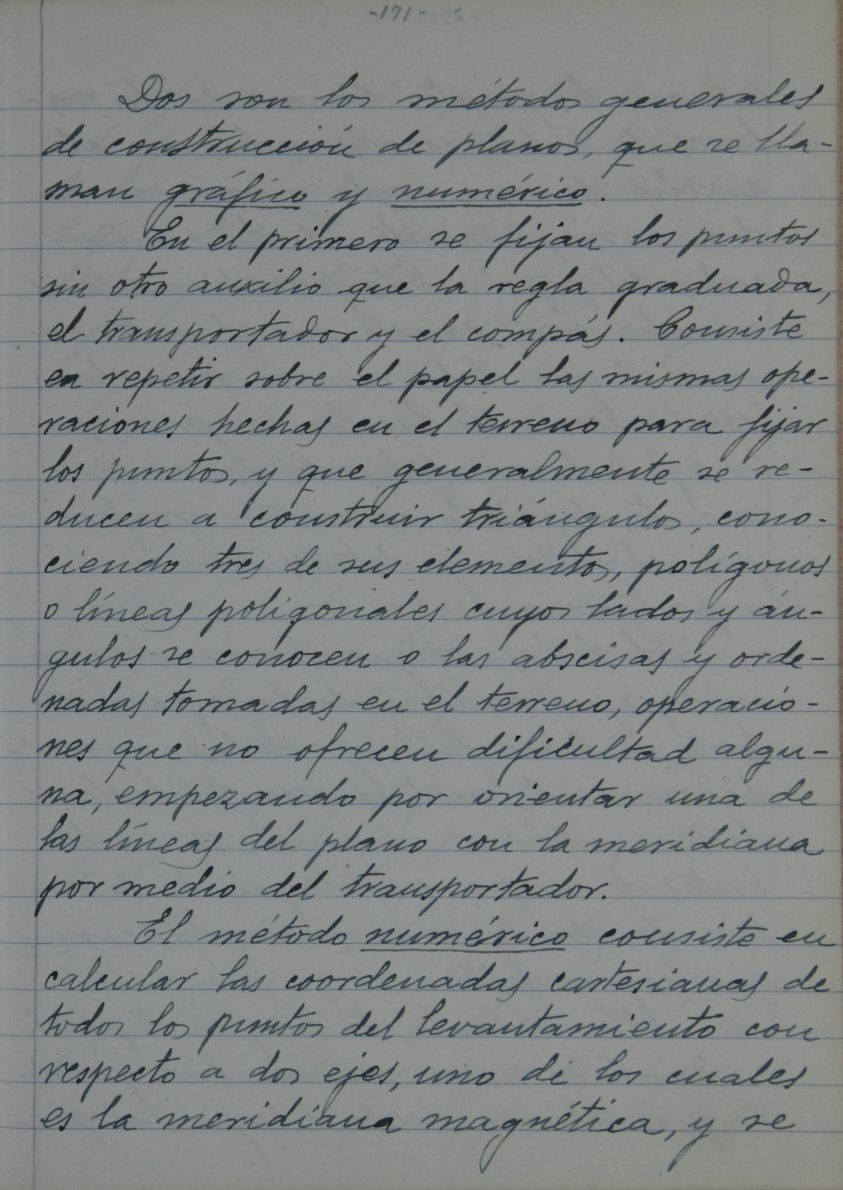 -171-
Dos son los métodos generales
de construcción de planos, que se lla-
man gráfico y numérico.
En el primero se fijan los puntos
sin otro auxilio que la regla graduada,
el transportador y el compás. Consiste
en repetir sobre el papel las mismas ope-
raciones hechas en el terreno para fijar
los puntos, y que generalmente se re-
ducen a construir triángulos, cono-
ciendo tres de sus elementos, polígonos
o líneas poligonales cuyos lados y án-
gulos se conocen o las abscisas y orde-
nadas tomadas en el terreno, operacio-
nes que no ofrecen dificultad algu-
na, empezando por orientar una de
las líneas del plano con la meridiana
por medio del transportador.
El método numérico consiste en
calcular las coordenadas cartesianas de
todos los puntos del levantamiento con
respecto a dos ejes, uno de los cuales
es la meridiana magnética, y se